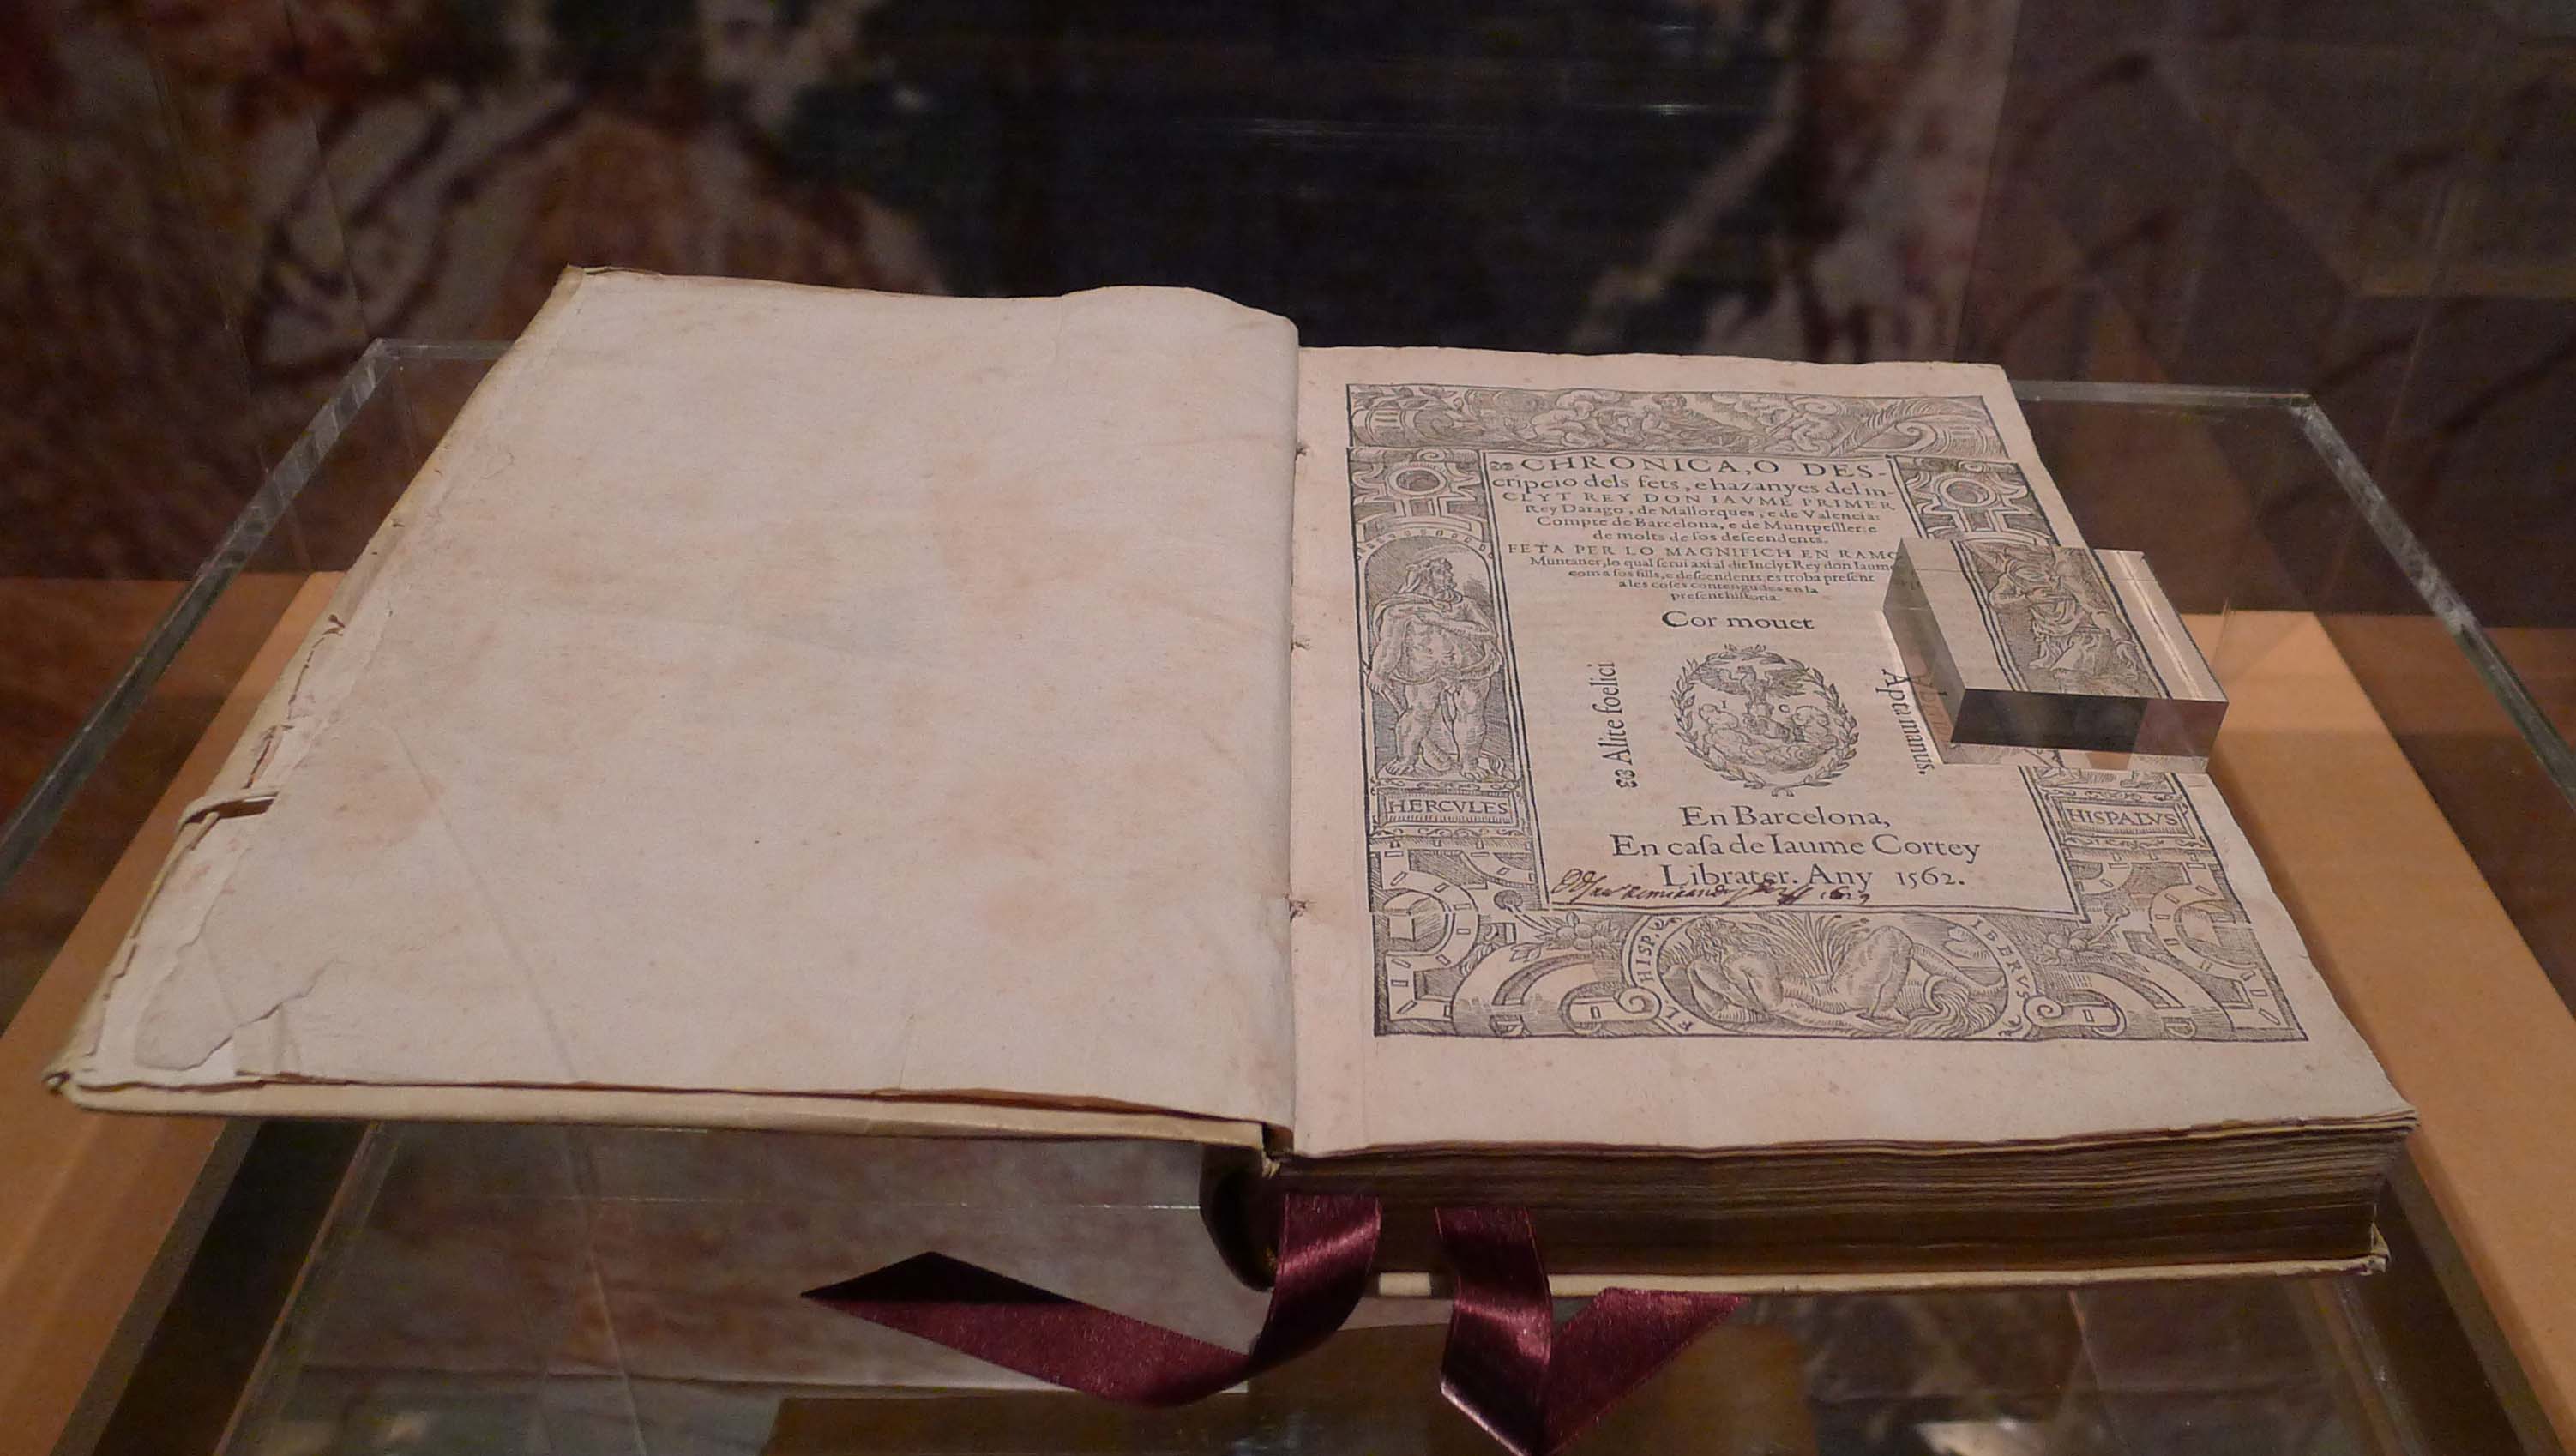 CHRONICA, O DES-
cripcio dels fets, e hazanyes del in-
CLYT REY DON IAVME PRIMER
Rey Darago, de Mallorques, e de Valencia:
Compte de Barcelona, e de Muntpeſller: e
de molts de ſos deſcendents.
FETA PER LO MAGNIFICH EN RAMO
Muntaner, lo qual ſerui axi al dit Inclyt Rey don Iaume
com a ſos fills, e deſcendents: es troba preſent
a les coſes contengudes en la
preſent hiſtoria.
Cor mouet
Alite foelici
Apta manus.
HERCVLES
HISPALVS
En Barcelona,
En caſa de Iaume Cortey
Librater. Any 1562.
FL. HISP. IBERVS